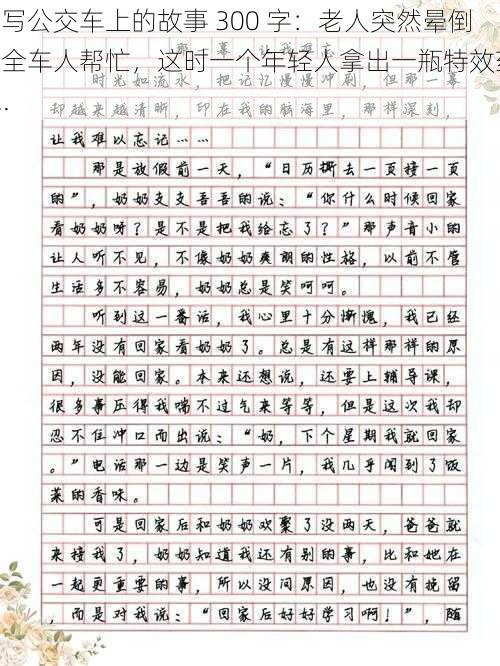 写公交车上的故事 300 字：老人突然晕倒
全车人帮忙，这时一个年轻人拿出一瓶特效
..
那一幕让我难忘
时光如流水，把记忆慢慢冲刷，但那一幕
却越来越清晰，印在我的脑海里，那样深刻，
让我难以忘记……
那是放假前一天，“日历撕去一页接一页
的”，奶奶支支吾吾的说：“你什么时候回家
看奶奶呀？是不是把我给忘了？”那声音小的
让人听不见，不像奶奶爽朗的性格，以前不管
生活多不容易，奶奶总是笑呵呵。
听到这一番话，我心里十分惭愧，我已经
两年没有回家看奶奶了。总是有这样那样的原
因，没能回家。本来还想说，还要上辅导课，
很多事压得我喘不过气来等等，但是这次我却
忍不住冲口而出说：“奶，下个星期我就回家
。”电话那一边是笑声一片，我几乎闻到了饭
菜的香味。
可是回家后和奶奶欢聚了没两天，爸爸就
来接我了，奶奶知道我还有别的事，比和她在
一起更重要的事，所以没问原因，也没有挽留
，而是对我说：“回家后好好学习啊！”，随